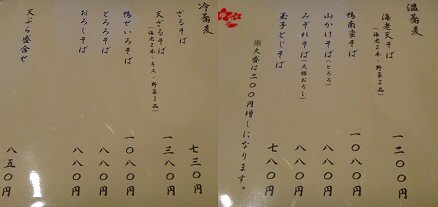 温蕎麦
海老天そば
(海老2本・野菜2品)
一二〇〇円
鴨南蛮そば
一〇八〇円
山かけそば(とろろ)
八八〇円
みぞれそば(大根おろし)
八八〇円
玉子とじそば
七八〇円
※大盛は二〇〇円増しになります。
冷蕎麦
ざるそば
七三〇円
天ざるそば
(海老2本・キス・野菜3品)
一三八〇円
鴨せいろそば
一〇八〇円
とろろそば
八八〇円
おろしそば
八八〇円
天ぷら盛合せ
八五〇円